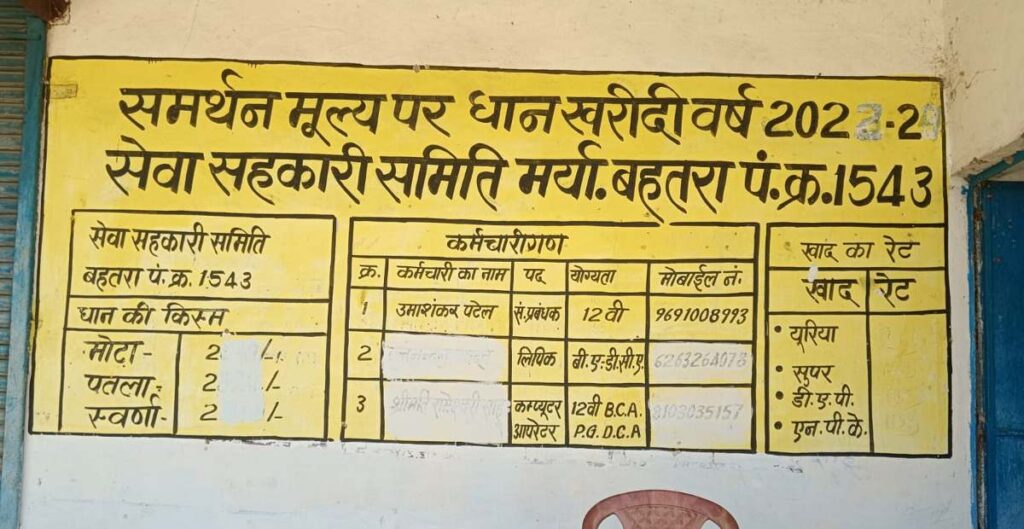 समर्थन मूल्य पर धान खरीदी वर्ष 2022-2
सेवा सहकारी समिति मर्या. बहतरा पं.क्र.1543
सेवा सहकारी समिति
बहतरा पं.क्र.1543
धान की किस्म
मोटा- 2 /-
पतला- 2 /-
स्वर्णा- 2 /-
कर्मचारीगण
क्र. कर्मचारी का नाम पद योग्यता मोबाईल नं.
1 उमाशंकर पटेल सं.प्रबंधक 12 वी 9691008993
2 लिपिक बी.ए.डी.सी.ए.
3 कम्प्यूटर आपरेटर 12वी B.C.A. P.G.D.C.A
खाद का रेट
खाद रेट
• यूरिया
• सुपर
• डी.ए.पी.
• एन.पी.के.